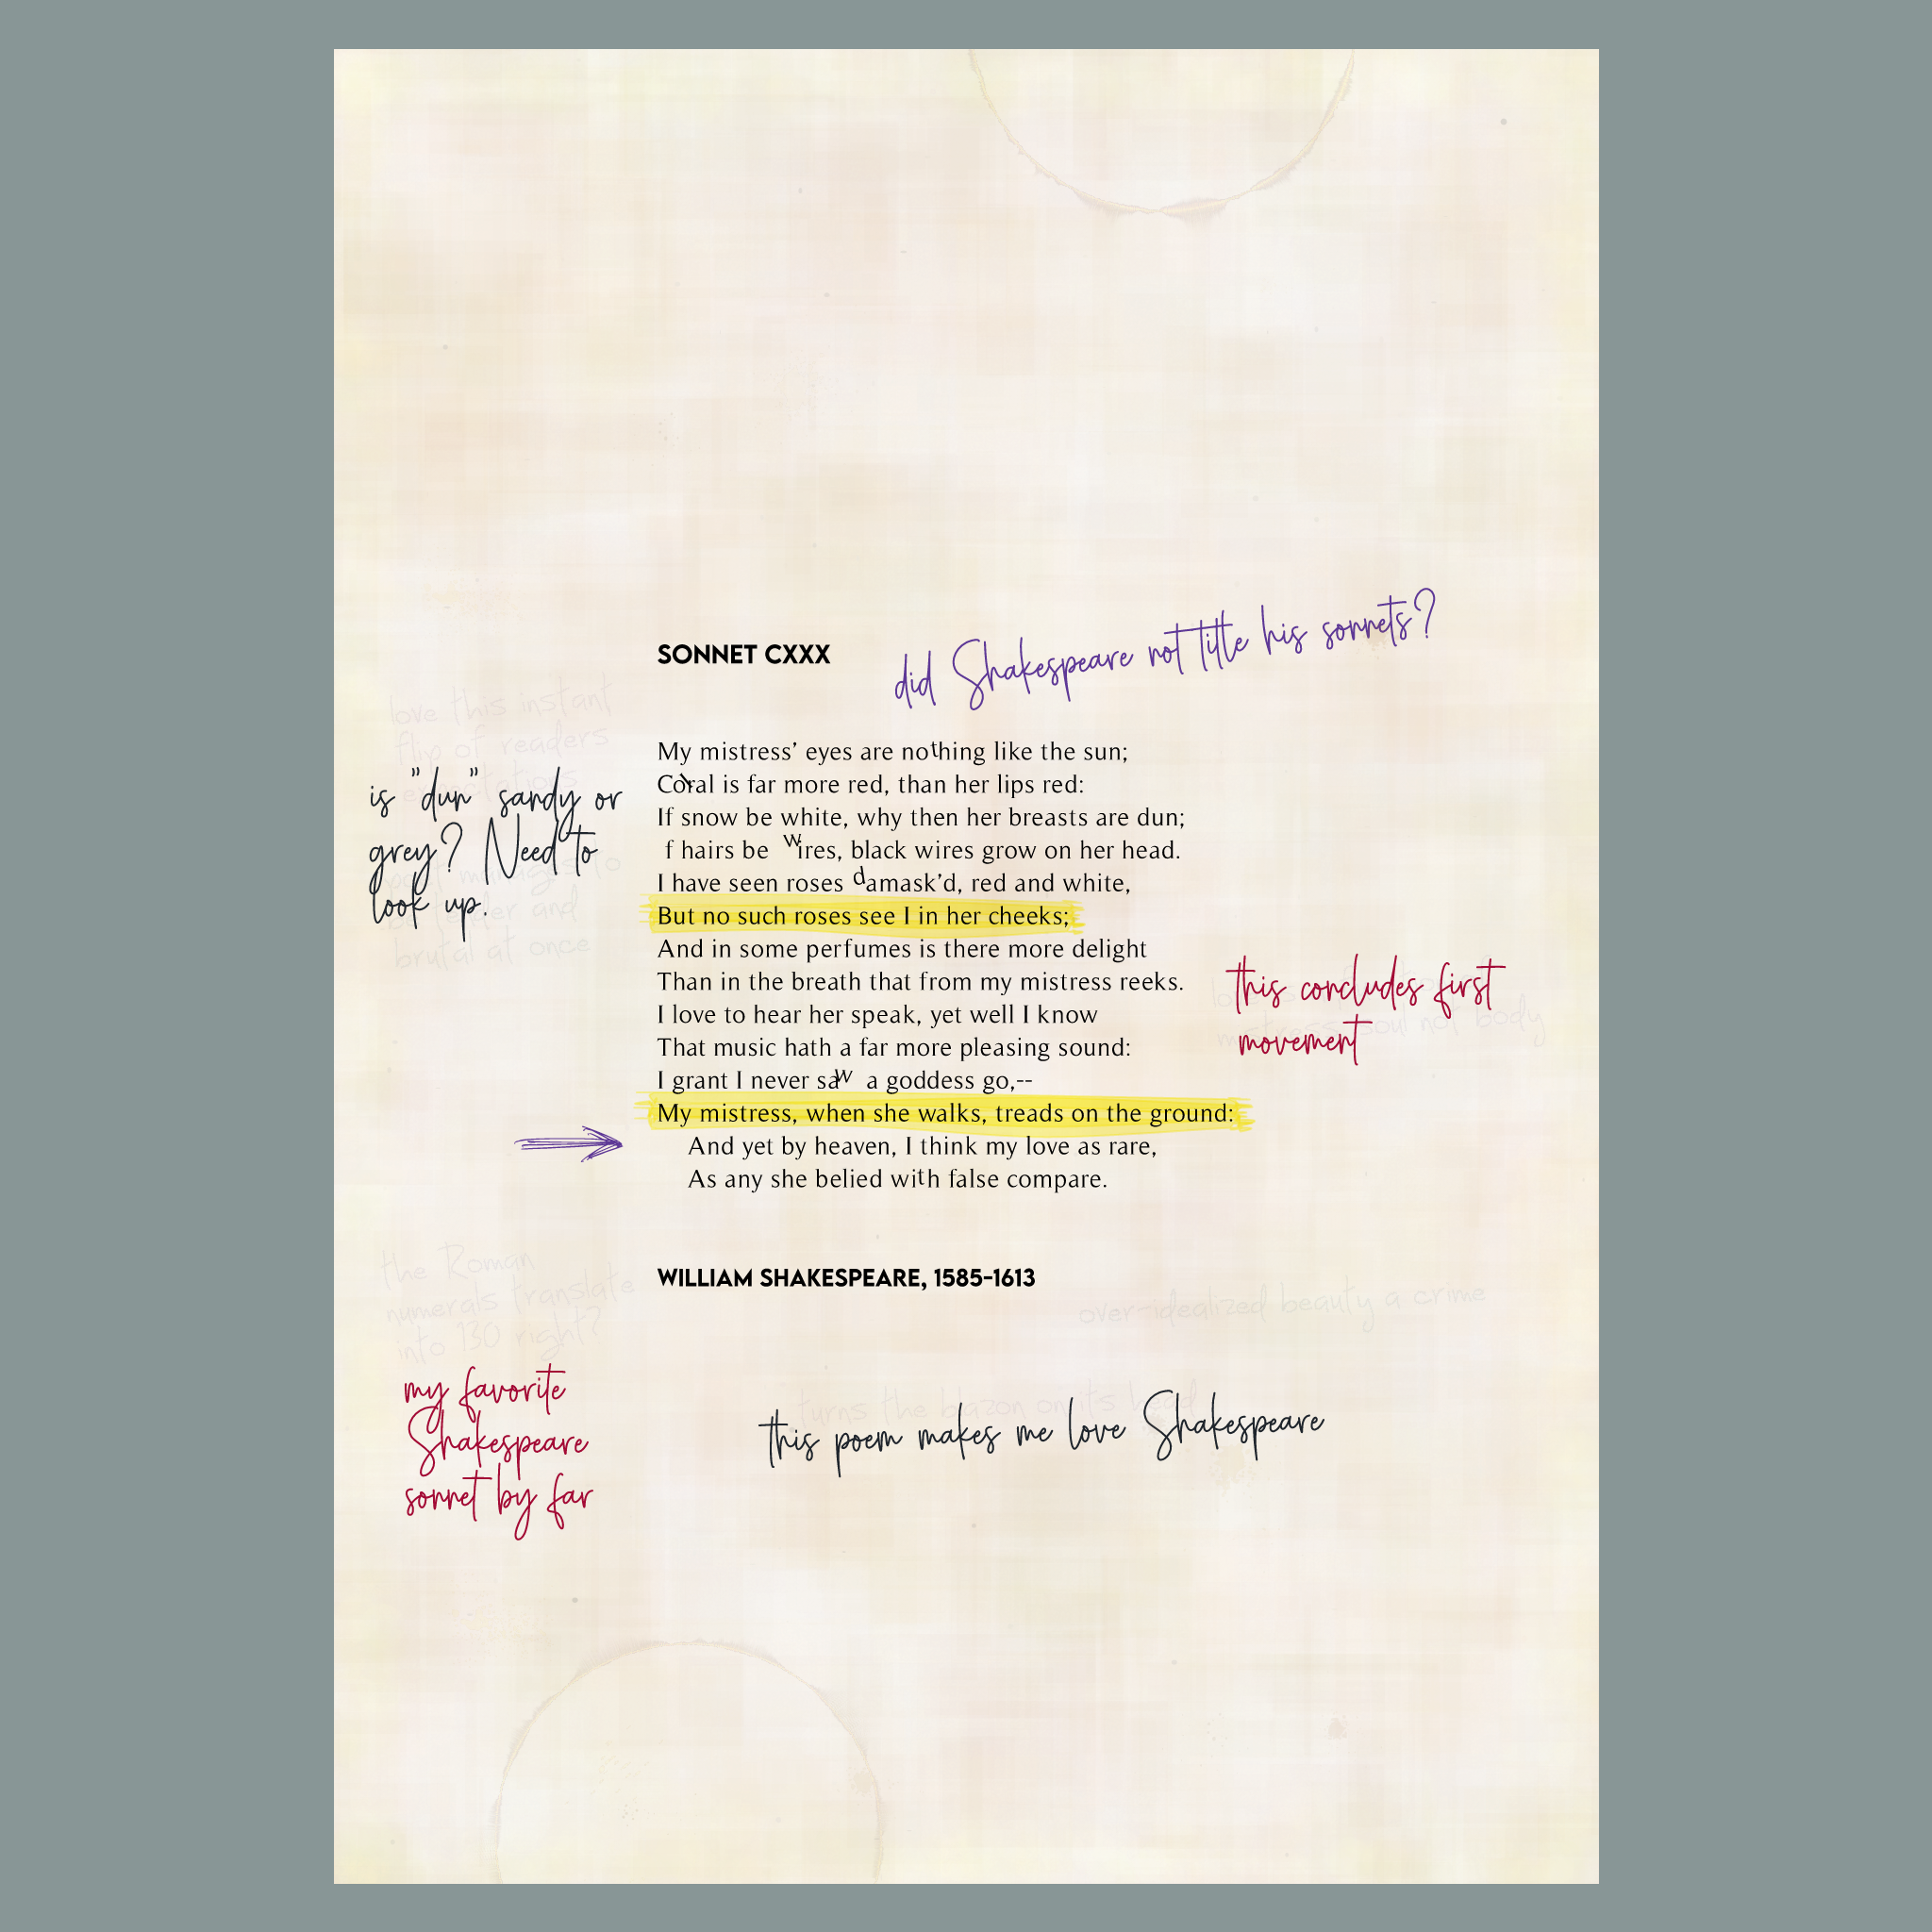 SONNET CXXX
did Shakespeare not title his sonnets?
love this instant
flip of readers
expectations
is "dun" sandy or
grey? Need to
look up.
poet manages to
be tender and
brutal at once
My mistress’ eyes are nothing like the sun;
Coral is far more red, than her lips red:
If snow be white, why then her breasts are dun;
f hairs be wires, black wires grow on her head.
I have seen roses damask’d, red and white,
But no such roses see I in her cheeks;
And in some perfumes is there more delight
Than in the breath that from my mistress reeks.
I love to hear her speak, yet well I know
That music hath a far more pleasing sound:
I grant I never saw a goddess go,--
My mistress, when she walks, treads on the ground:
And yet by heaven, I think my love as rare,
As any she belied with false compare.
this concludes first
movement
mistress soul not body
WILLIAM SHAKESPEARE, 1585-1613
the Roman
numerals translate
into 130 right?
over-idealized beauty a crime
my favorite
Shakespeare
sonnet by far
turns the blazon on its head
this poem makes me love Shakespeare